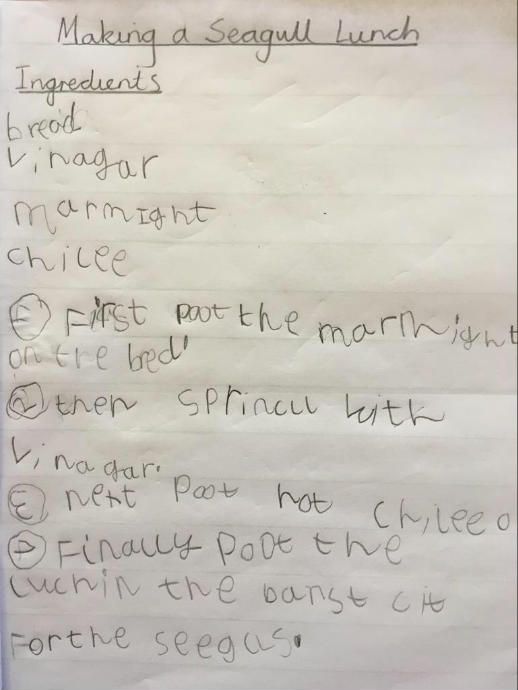 Making a Seagull Lunch
Ingredients
bread
Vinagar
marmight
chilee
① First poot the marmight
on the bed
② then sprincu with
Vinagar.
③ next poot hot chilee o
④ Finally poot the
Luchin the banst cit
For the seegus.